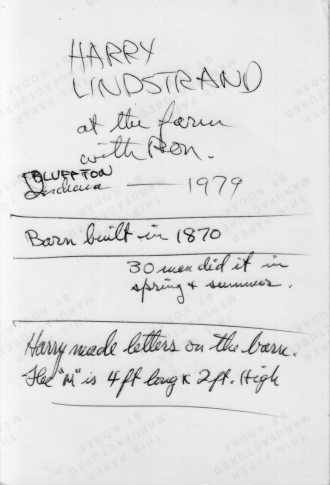 HARRY
LINDSTRAND
at the farm
with Ron.
BLUFFTON
Indiana — 1979
Barn built in 1870
30 men did it in
spring & summer.
Harry made letters on the barn.
The "M" is 4ft long x 2ft. High